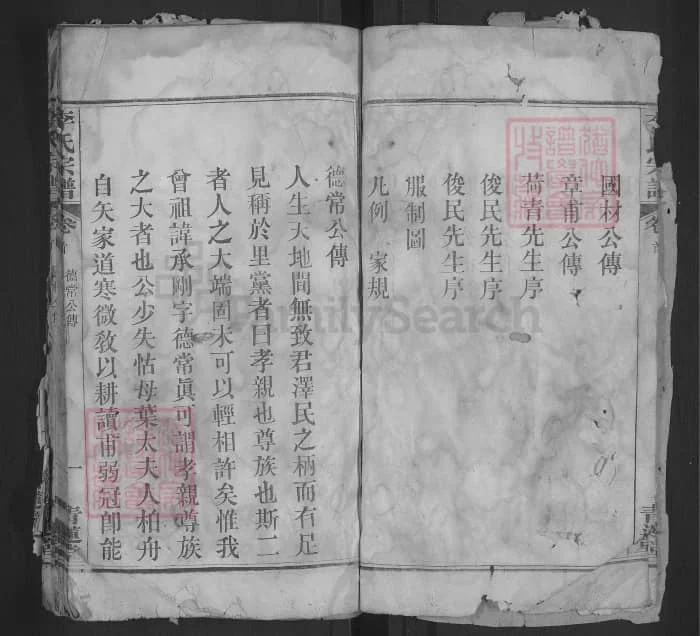 國材公傳
章甫公傳
荷青先生序
俊民先生序
俊民先生序
服制圖
凡例 家規
德常公傳
人生天地間無致君澤民之柄而有足
見稱於里黨者曰孝親也尊族也斯二
者人之大端固未可以輕相許矣惟我
曾祖諱承剛字德常眞可謂孝親尊族
之大者也公少失怙母葉太夫人柏舟
自矢家道寒微敎以耕讀甫弱冠卽能
李氏宗譜 卷首
德常公傳
一
青蓮堂
FamilySearch